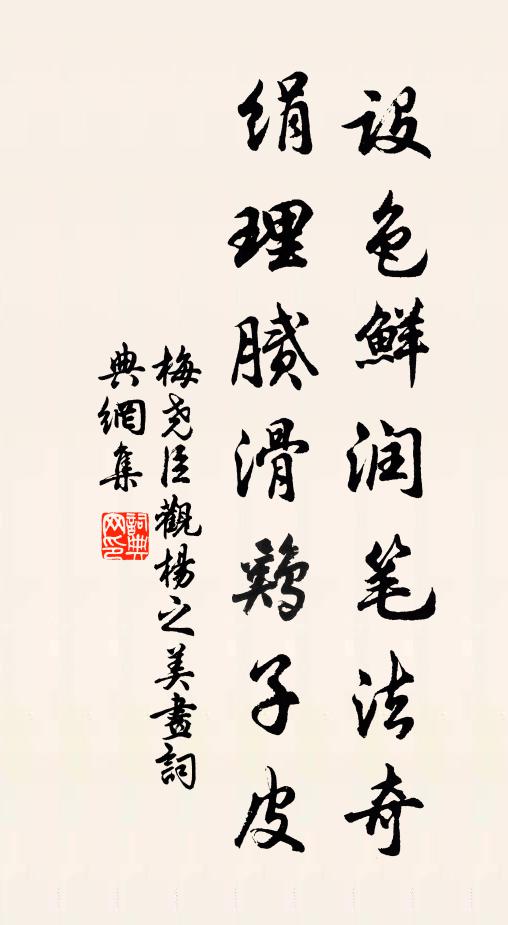 设色鲜润笔法奇
绢理腻滑鸡子皮
梅尧臣觀楊之美畫詞
典網集
詞典
网印